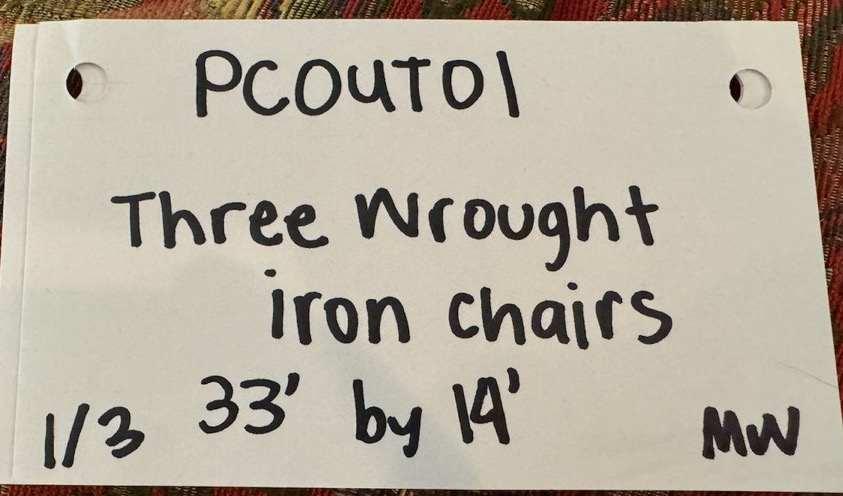 PCOUT01
Three Wrought
iron chairs
1/3 33' by 14' MW